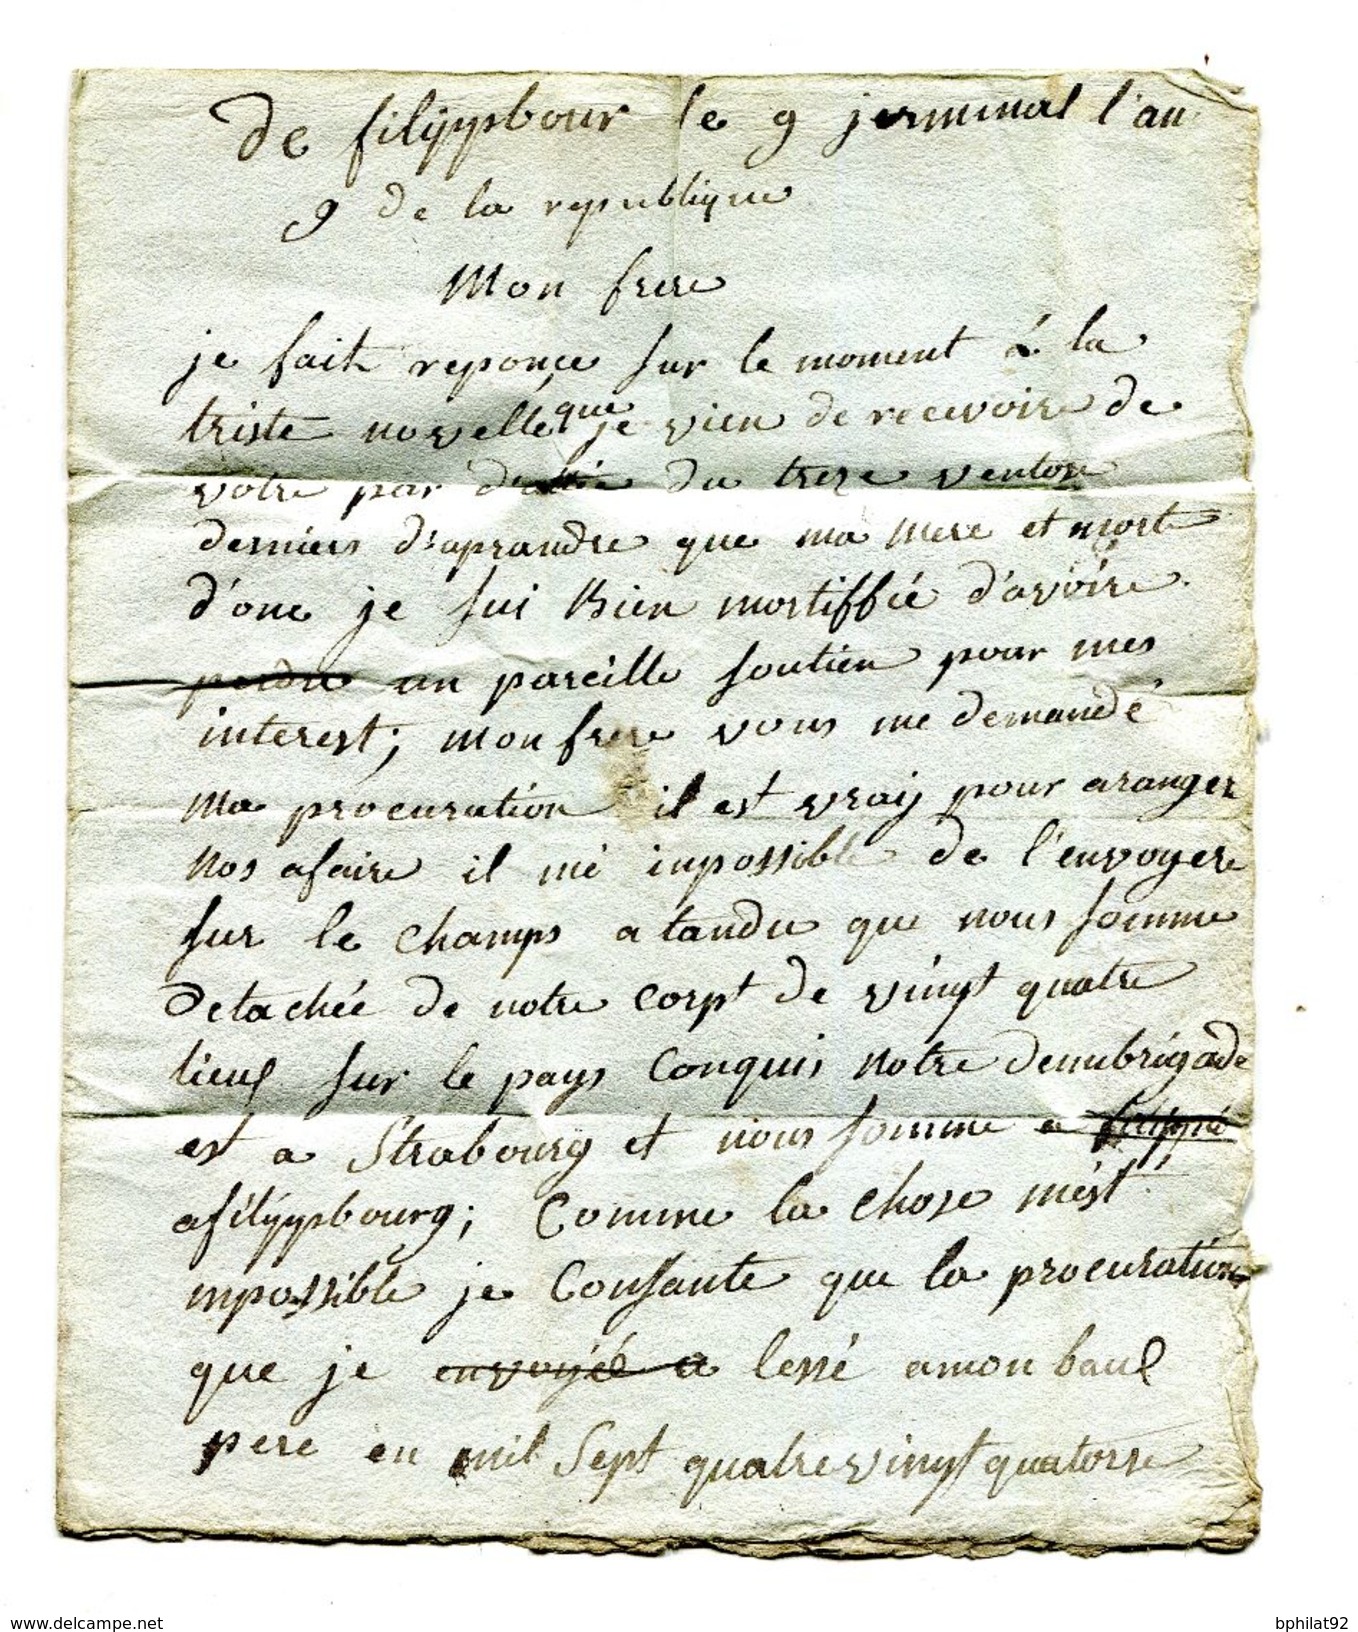 de filippbour le 9 jerminal l'an
9 de la republique
Mon frere
je fait reponce sur le moment à la
triste novelle que je vien de recevoire de
votre par du treze ventose
derniers d'aprandre que ma mere et morte
d'onc je sui Bien mortiffié d'avoire
perdu un pareille soutien pour mes
interest; mon frere vous me demandé
ma procuration il est vray pour aranger
nos afaire il mé inpossible de l'envoyere
sur le champs atandu que nous somme
detachée de notre corpt de vingt quatre
lieus sur le pays conquis notre demubrigade
est a Strabourg et nous somme a
afilippbourg; Comme la chose mest
inpossible je Consante que la procuration
que je envoyée a lessé amon baus
pere en mil sept quatrevingt quatorse
www.delcampe.net
bphilat92